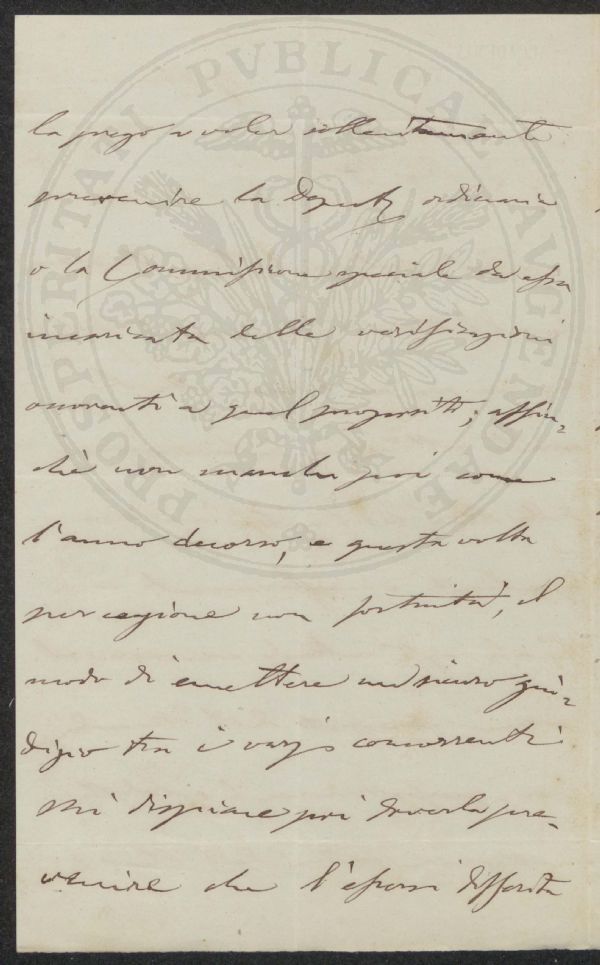 PROSPERITATI PVBLICAE AVGENDAE
la prego a voler sollecitamente
prevenire la Deput. ordinaria
o la Commissione speciale da essa
incaricata delle verificazioni
occorrenti a quel proposito; affin-
chè non manchi poi come
l'anno decorso, e questa volta
per cagione non fortuita, il
modo di emettere un sicuro giu-
dizio tra i varj concorrenti
Mi dispiace poi doverla pre-
venire che l'essersi differita